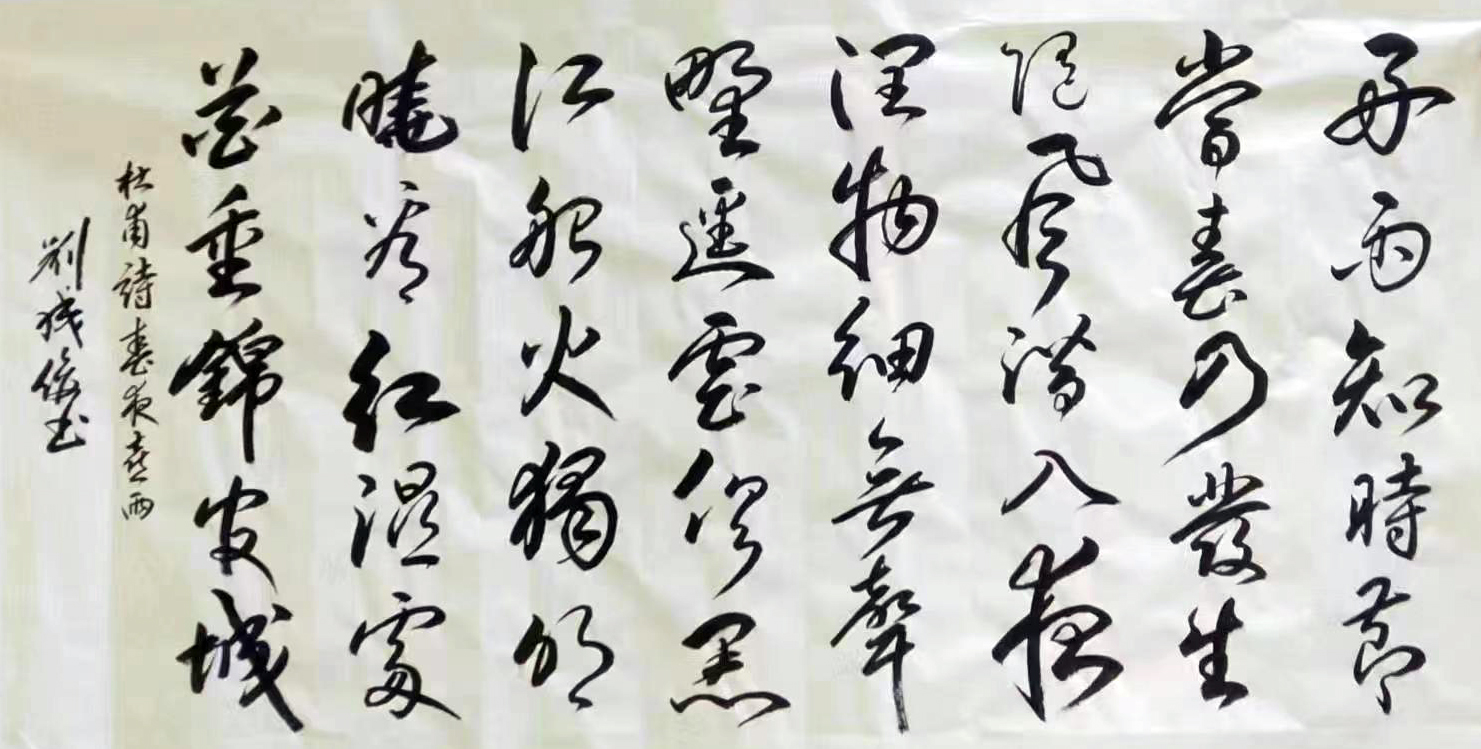 好雨知時節
當春乃發生
随風潜入夜
潤物細無聲
野逕雲俱黑
江船火獨明
曉看紅湿處
花重錦官城
杜甫詩春夜喜雨
劉俊书